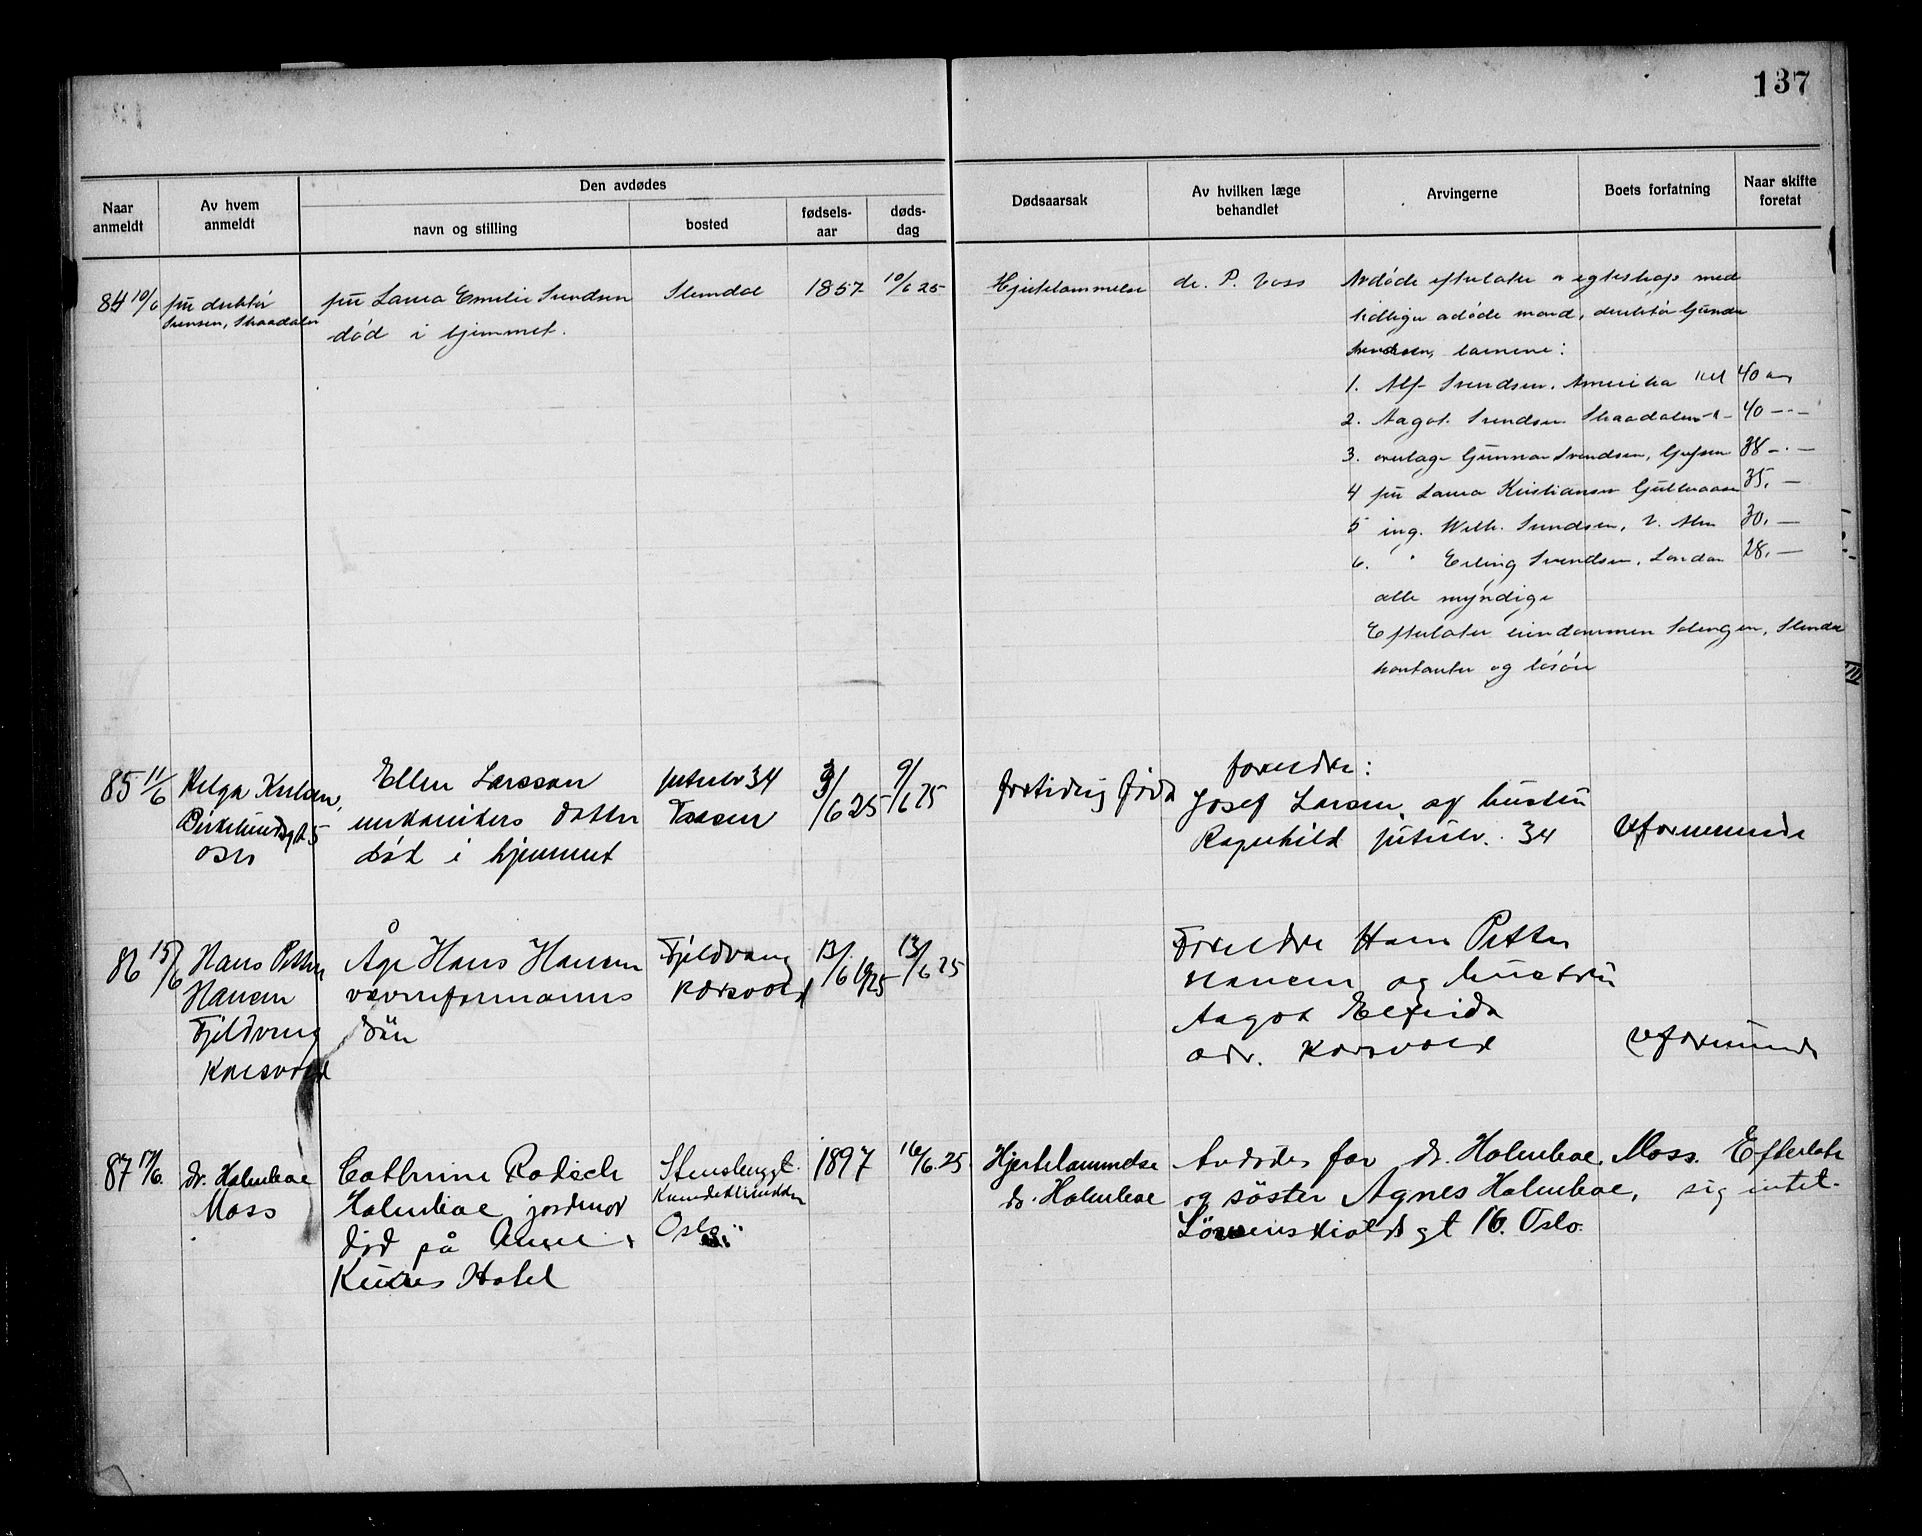 137
Den avdødes
Naar anmeldt
Av hvem anmeldt
navn og stilling
bosted
fødsels-aar
døds-dag
Dødsaarsak
Av hvilken læge behandlet
Arvingerne
Boets forfatning
Naar skifte foretat
84 10/6 fru direktør Svensen, Skaadalen
fru Laura Emilie Svendsen
død i hjemmet.
Slemdal 1857 10/6 25
Hjertelammelse dr. P. Voss
Avdøde efterlater av egteskap med
tidligere avdøde mand, direktør Gunder
Svendsen, barnene:
1. Alf Svendsen, Amerika 40 aar
2. Aagot Svendsen Skaadalen 40 -"-
3. overlæge Gunnar Svendsen, 38 -"-
4 fru Laura Kristiansen 35. -
5 ing. Wilh. Svendsen, V. Aker 30. -
6. " Erling Svendsen, London 28. -
alle myndige
Efterlater eiendommen Solengen, Slemdal
kontanter og løsøre
85 11/6 Helga
5 Oslo
Ellen Larsson
mekanikers datter
død i hjemmet
Jutulv 34
Taasen
/6 25 9/6 25
fortidlig født
foreldre:
Josef Larsen og hustru
Ragnhild Jutulv. 34
uformuende
86 15/6 Hans Petter
Hansen
Fjeldvang
Korsvold
Åge Hans Hansen
søn
Fjeldvang
Korsvold
13/6 1925 13/6 25
"
Foreldre Hans Petter
Hansen og hustru
Aagot Elfrida
adr. Korsvold
uformuende
87 17/6. dr. Holmboe
Moss
Cathrine Rodsch
Holmboe, jordmor
død på Anne
Kures Hotel
Stensberggt.
Kvindeklinikken
Oslo
1897 16/6. 25
Hjertelammelse
dr. Holmboe
Avdødes far dr. Holmboe, Moss. Efterlater
og søster Agnes Holmboe, sig intet.
Løvenskiolds gt 16. Oslo.